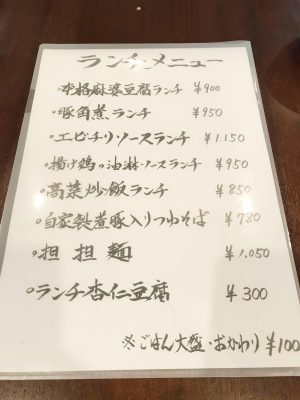 ランチメニュー
○本格麻婆豆腐ランチ ¥900
○豚角煮ランチ ¥950
○エビチリソースランチ ¥1.150
○揚げ鶏の油淋ソースランチ ¥950
○高菜炒飯ランチ ¥850
○自家製煮豚入りつゆそば ¥780
○担担麺 ¥1.050
○ランチ杏仁豆腐 ¥300
※ごはん大盛・おかわり ¥100